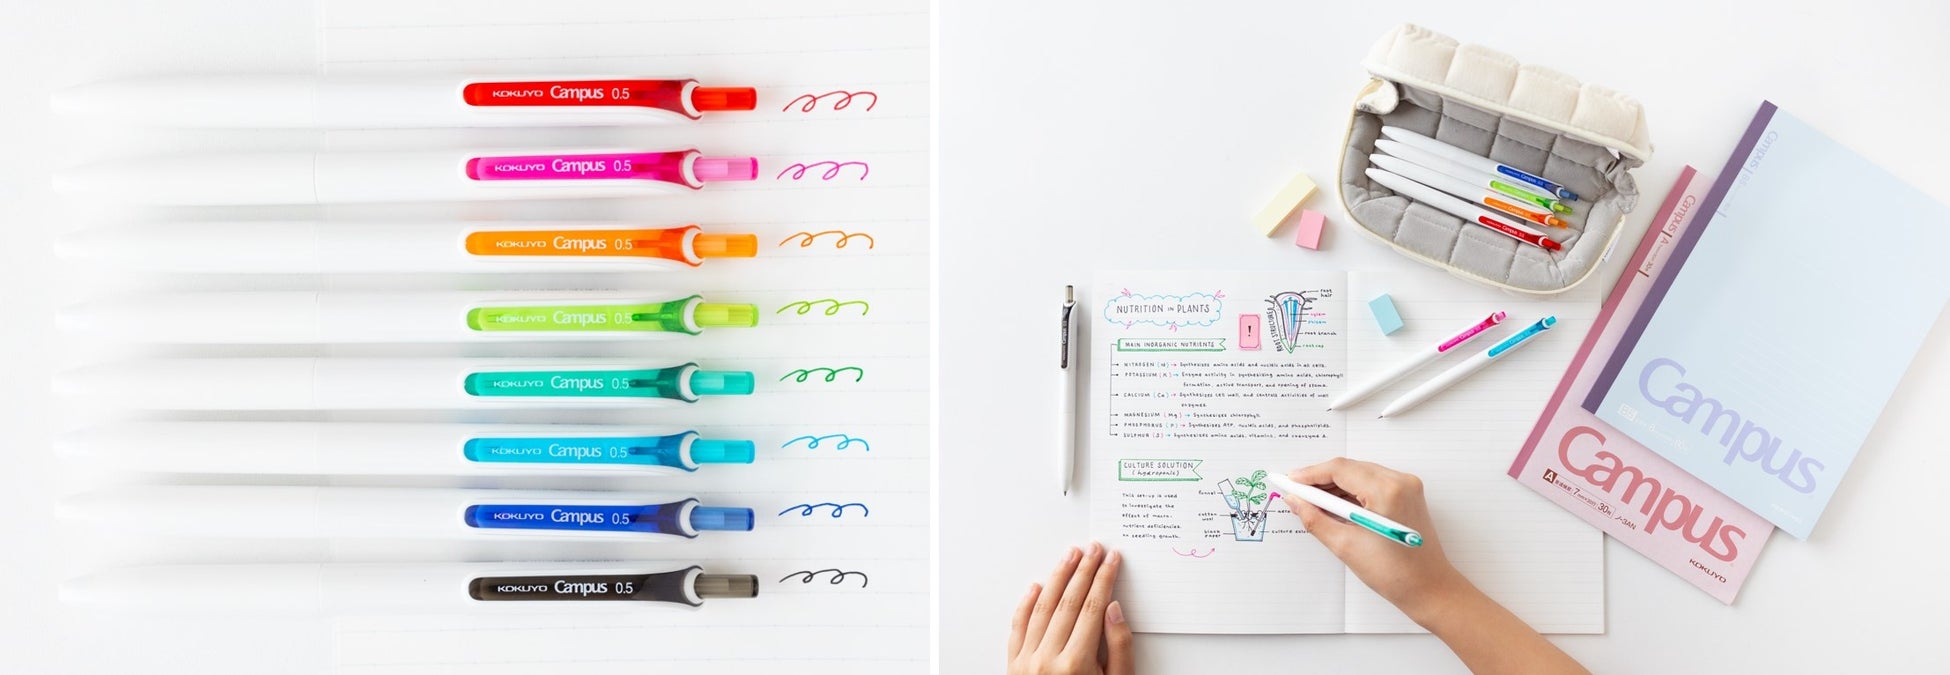 KOKUYO Campus 0.5
KOKUYO Campus 0.5
KOKUYO Campus 0.5
KOKUYO Campus 0.5
KOKUYO Campus 0.5
KOKUYO Campus 0.5
KOKUYO Campus 0.5
KOKUYO Campus 0.5
NUTRITION IN PLANTS
root hair
xylem
root branch
root cap
ROOT STRUCTURE
!
MAIN INORGANIC NUTRIENTS
NITROGEN (N) → Synthesizes amino acids and nucleic acids in all cells.
POTASSIUM (K) → Enzyme activity in synthesizing amino acids, chlorophyll
formation, active transport, and opening of stoma.
CALCIUM (Ca) → Synthesizes cell wall, and controls activities of wall
enzymes.
MAGNESIUM (Mg) → Synthesizes chlorophyll.
PHOSPHORUS (P) → Synthesizes ATP, nucleic acids, and phospholipids.
SULPHUR (S) → Synthesizes amino acids, vitamins, and coenzyme A.
CULTURE SOLUTION
(hydroponic)
This set-up is used
to investigate the
effect of macro-
nutrient deficiencies
on seedling growth.
funnel
cotton
wool
black
paper
culture
Campus
Campus
A
7
30
KOKUYO